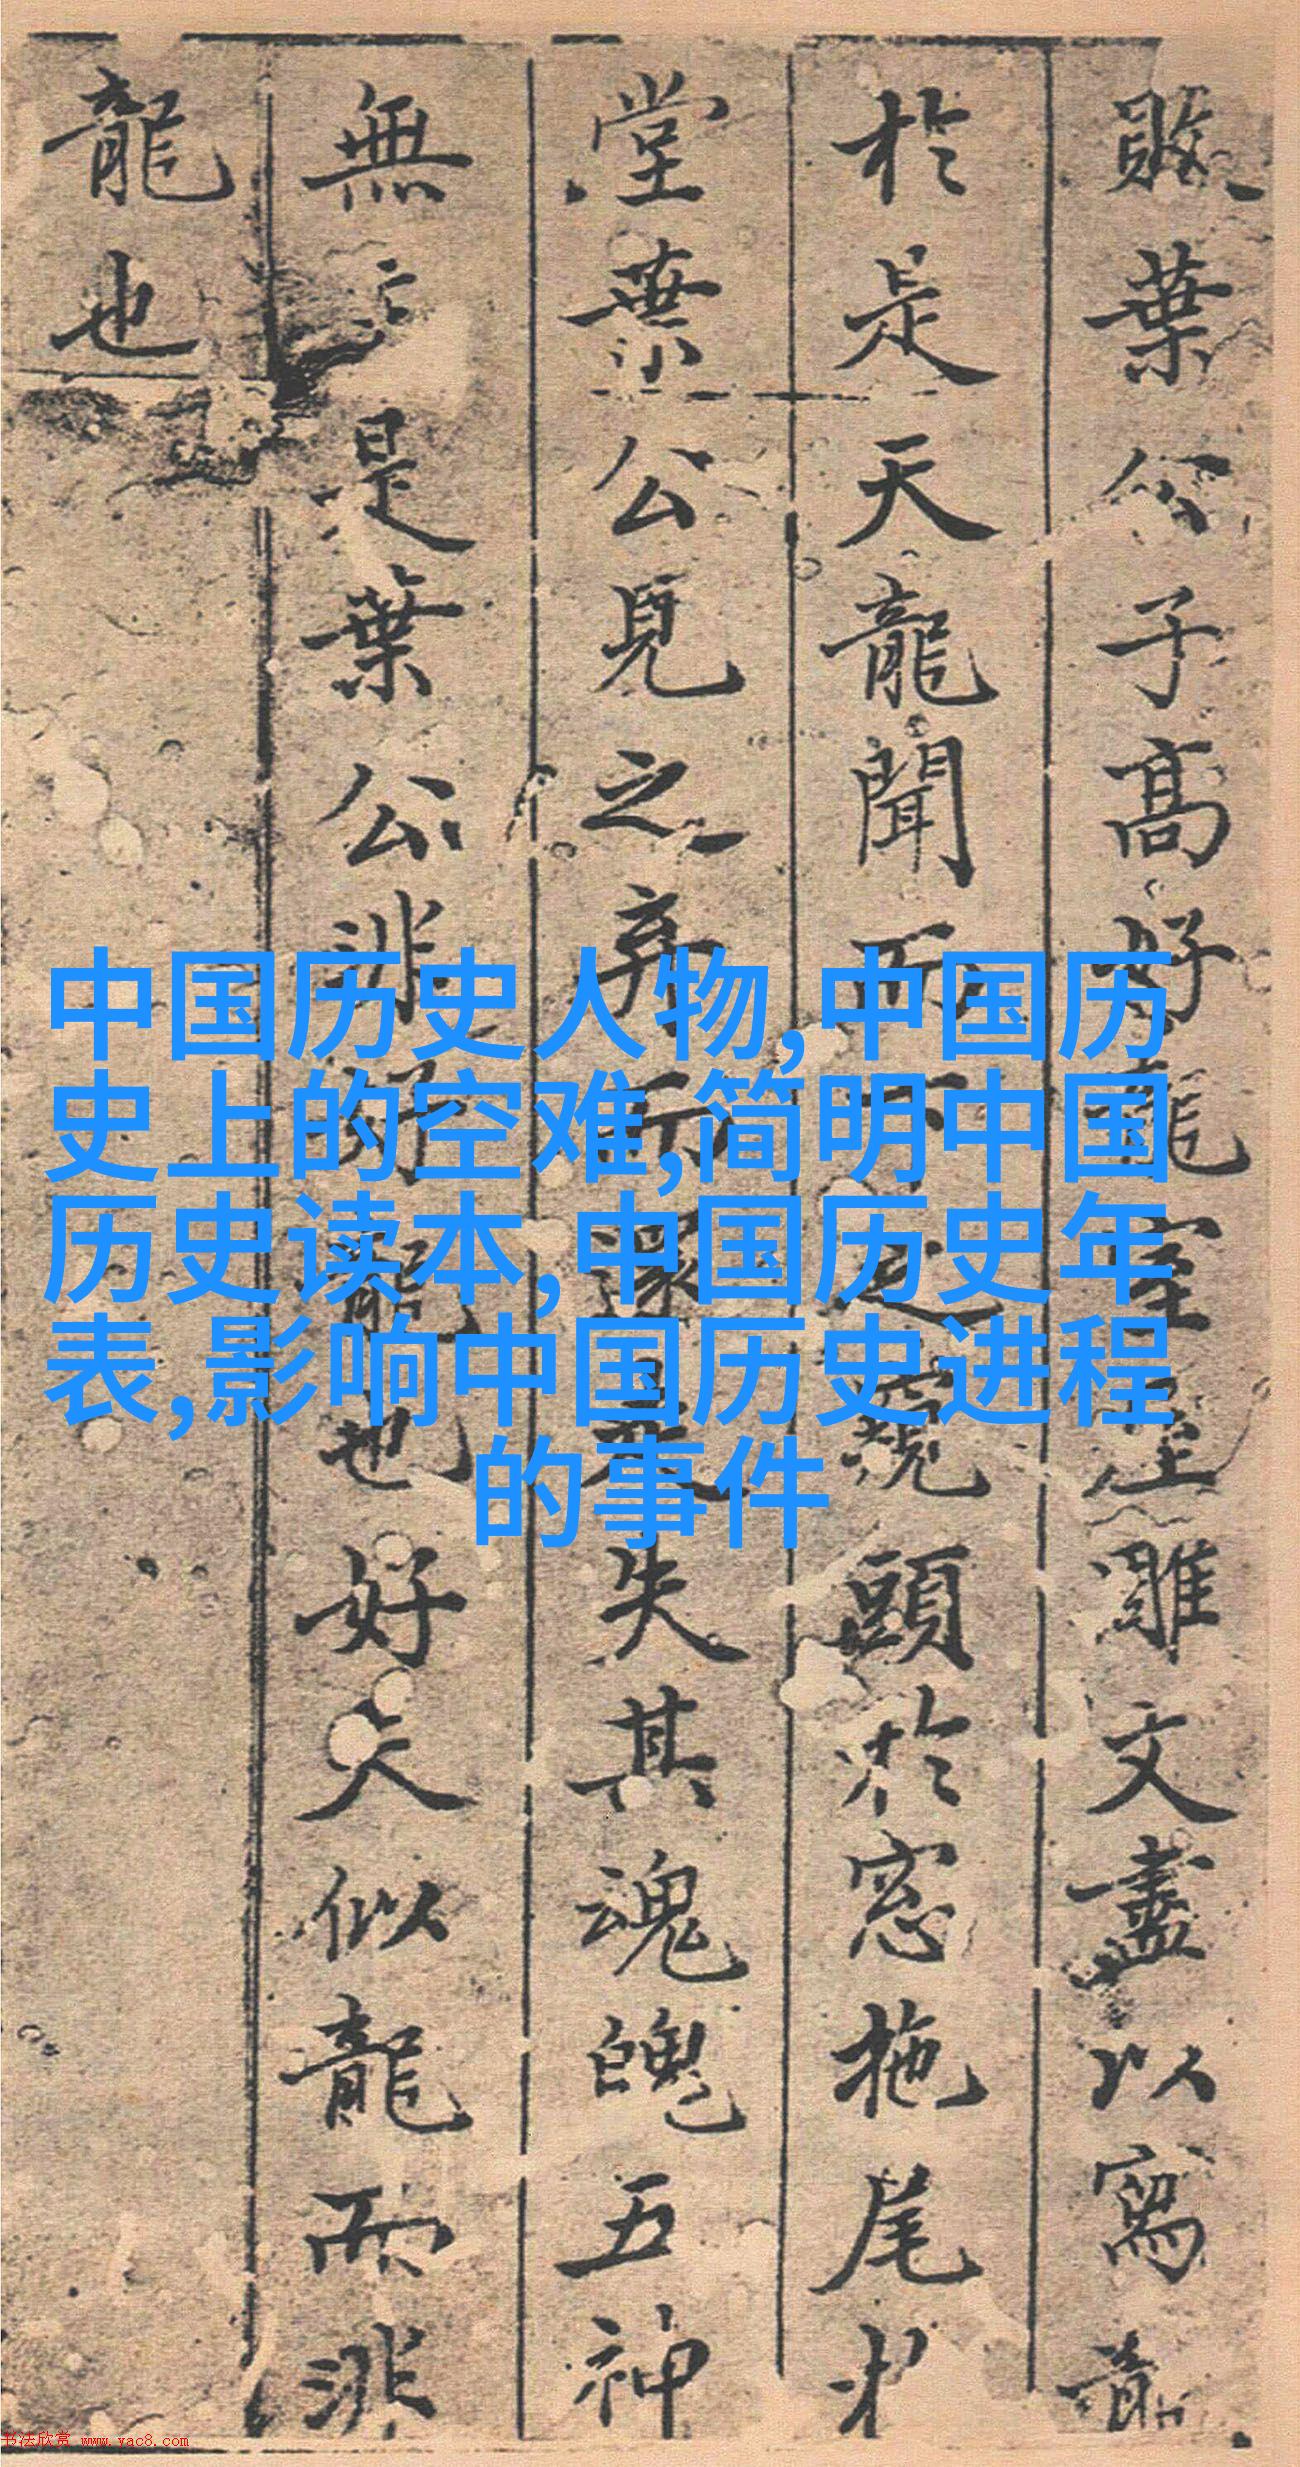 敗葉公子高好龍室屋雕文盡以寫龍
於是天龍聞而下之窺頭於窓拖尾於
堂葉公見之弃而還走失其魂魄五神
無主是葉公非好龍也好夫似龍而非
龍也
中国历史人物,中国历
史上的空难,简明中国
历史读本,中国历史年
表,影响中国历史进程
的事件
书法欣赏 www.yac8.com